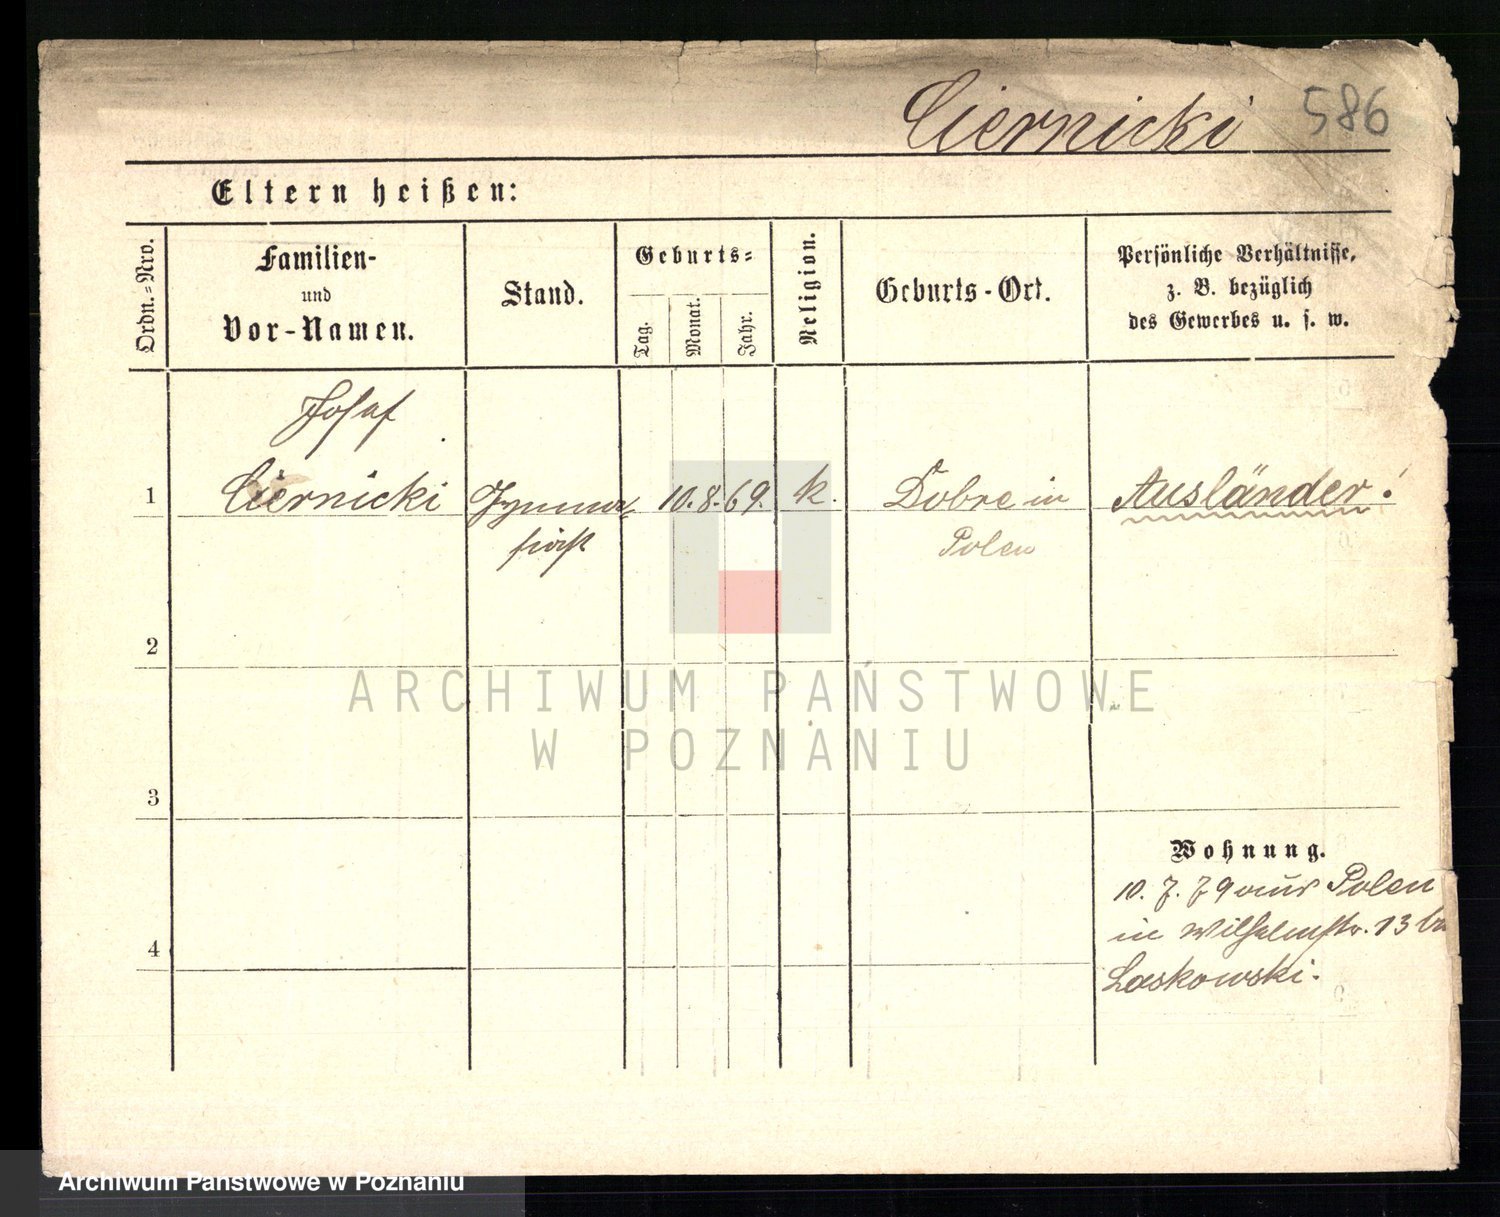 Ciernicki 586
Eltern heißen:
Ordn.=Nro.
Familien-
und
Vor-Namen.
Stand.
Geburts=
Tag.
Monat.
Jahr.
Religion.
Geburts-Ort.
Persönliche Verhältnisse,
z. B. bezüglich
des Gewerbes u. s. w.
Josef
1 Ciernicki Gymna= 10. 8. 69. k. Dobre in Ausländer!
siast Polen
2
ARCHIWUM PAŃSTWOWE
W POZNANIU
3
Wohnung.
10. 7. 79 aus Polen
in Wilhelmstr. 13 bei
4
Laskowski.
Archiwum Państwowe w Poznaniu